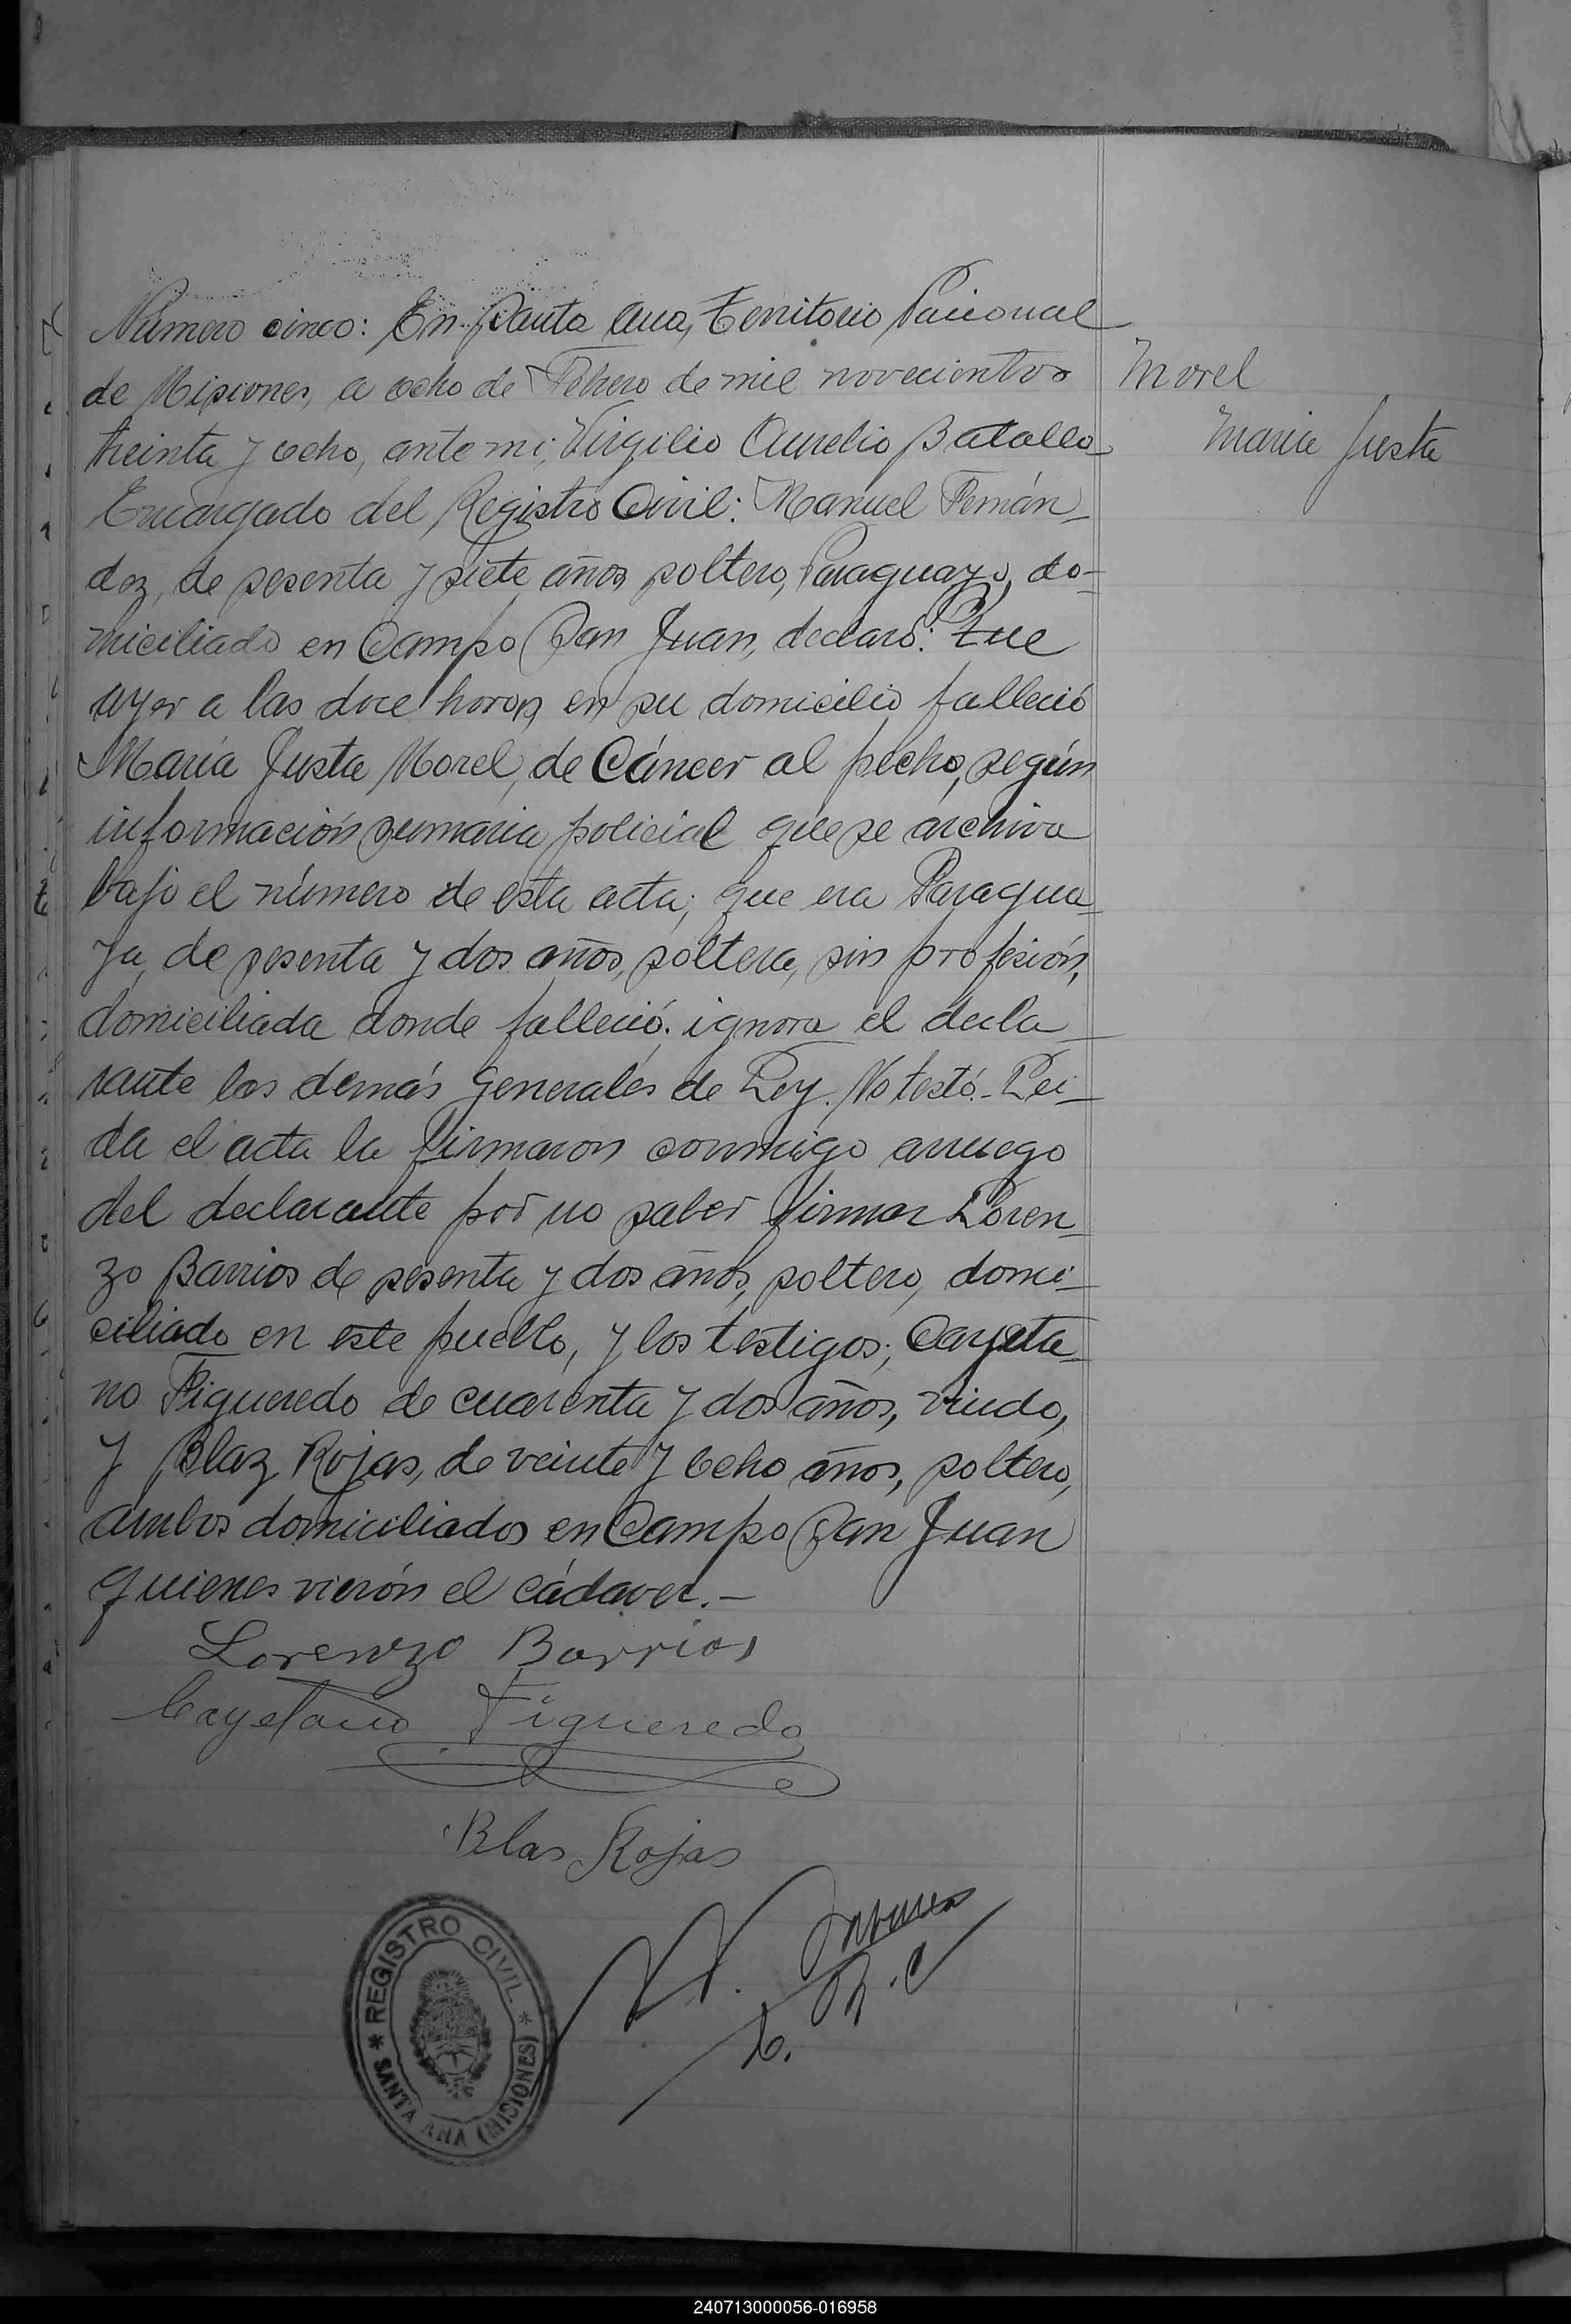 Número cinco: En Santa Ana, Territorio Nacional
de Misiones, a ocho de Febrero de mil novecientos
treinta y ocho, ante mi, Virgilio Aurelio Batalla
Encargado del Registro Civil: Manuel Fernán-
dez, de sesenta y siete años, soltero, Paraguayo, do-
miciliado en Campo San Juan, declaró: Que
ayer a las doce horas, en su domicilio falleció
María Justa Morel, de Cáncer al pecho, según
información sumaria policial que se archiva
bajo el número de esta acta; que era Paragua-
ya, de sesenta y dos años, soltera, sin profesión,
domiciliada donde falleció. ignora el decla-
rante las demás generales de Ley. No testó.- Leí-
da el acta la firmaron conmigo arruego
del declarante por no saber firmar Loren-
zo Barrios de sesenta y dos años, soltero, domi-
ciliado en este pueblo, y los testigos; Cayeta-
no Figueredo de cuarenta y dos años, viudo,
y Blaz Rojas, de veinte y ocho años, soltero,
ambos domiciliados en Campo San Juan
quienes vierón el cádaver.-
Lorenzo Barrios
Cayetano Figueredo
Blas Rojas
R.C
REGISTRO CIVIL
* SANTA ANA (MISIONES) *
Morel
Maria Justa
240713000056-016958